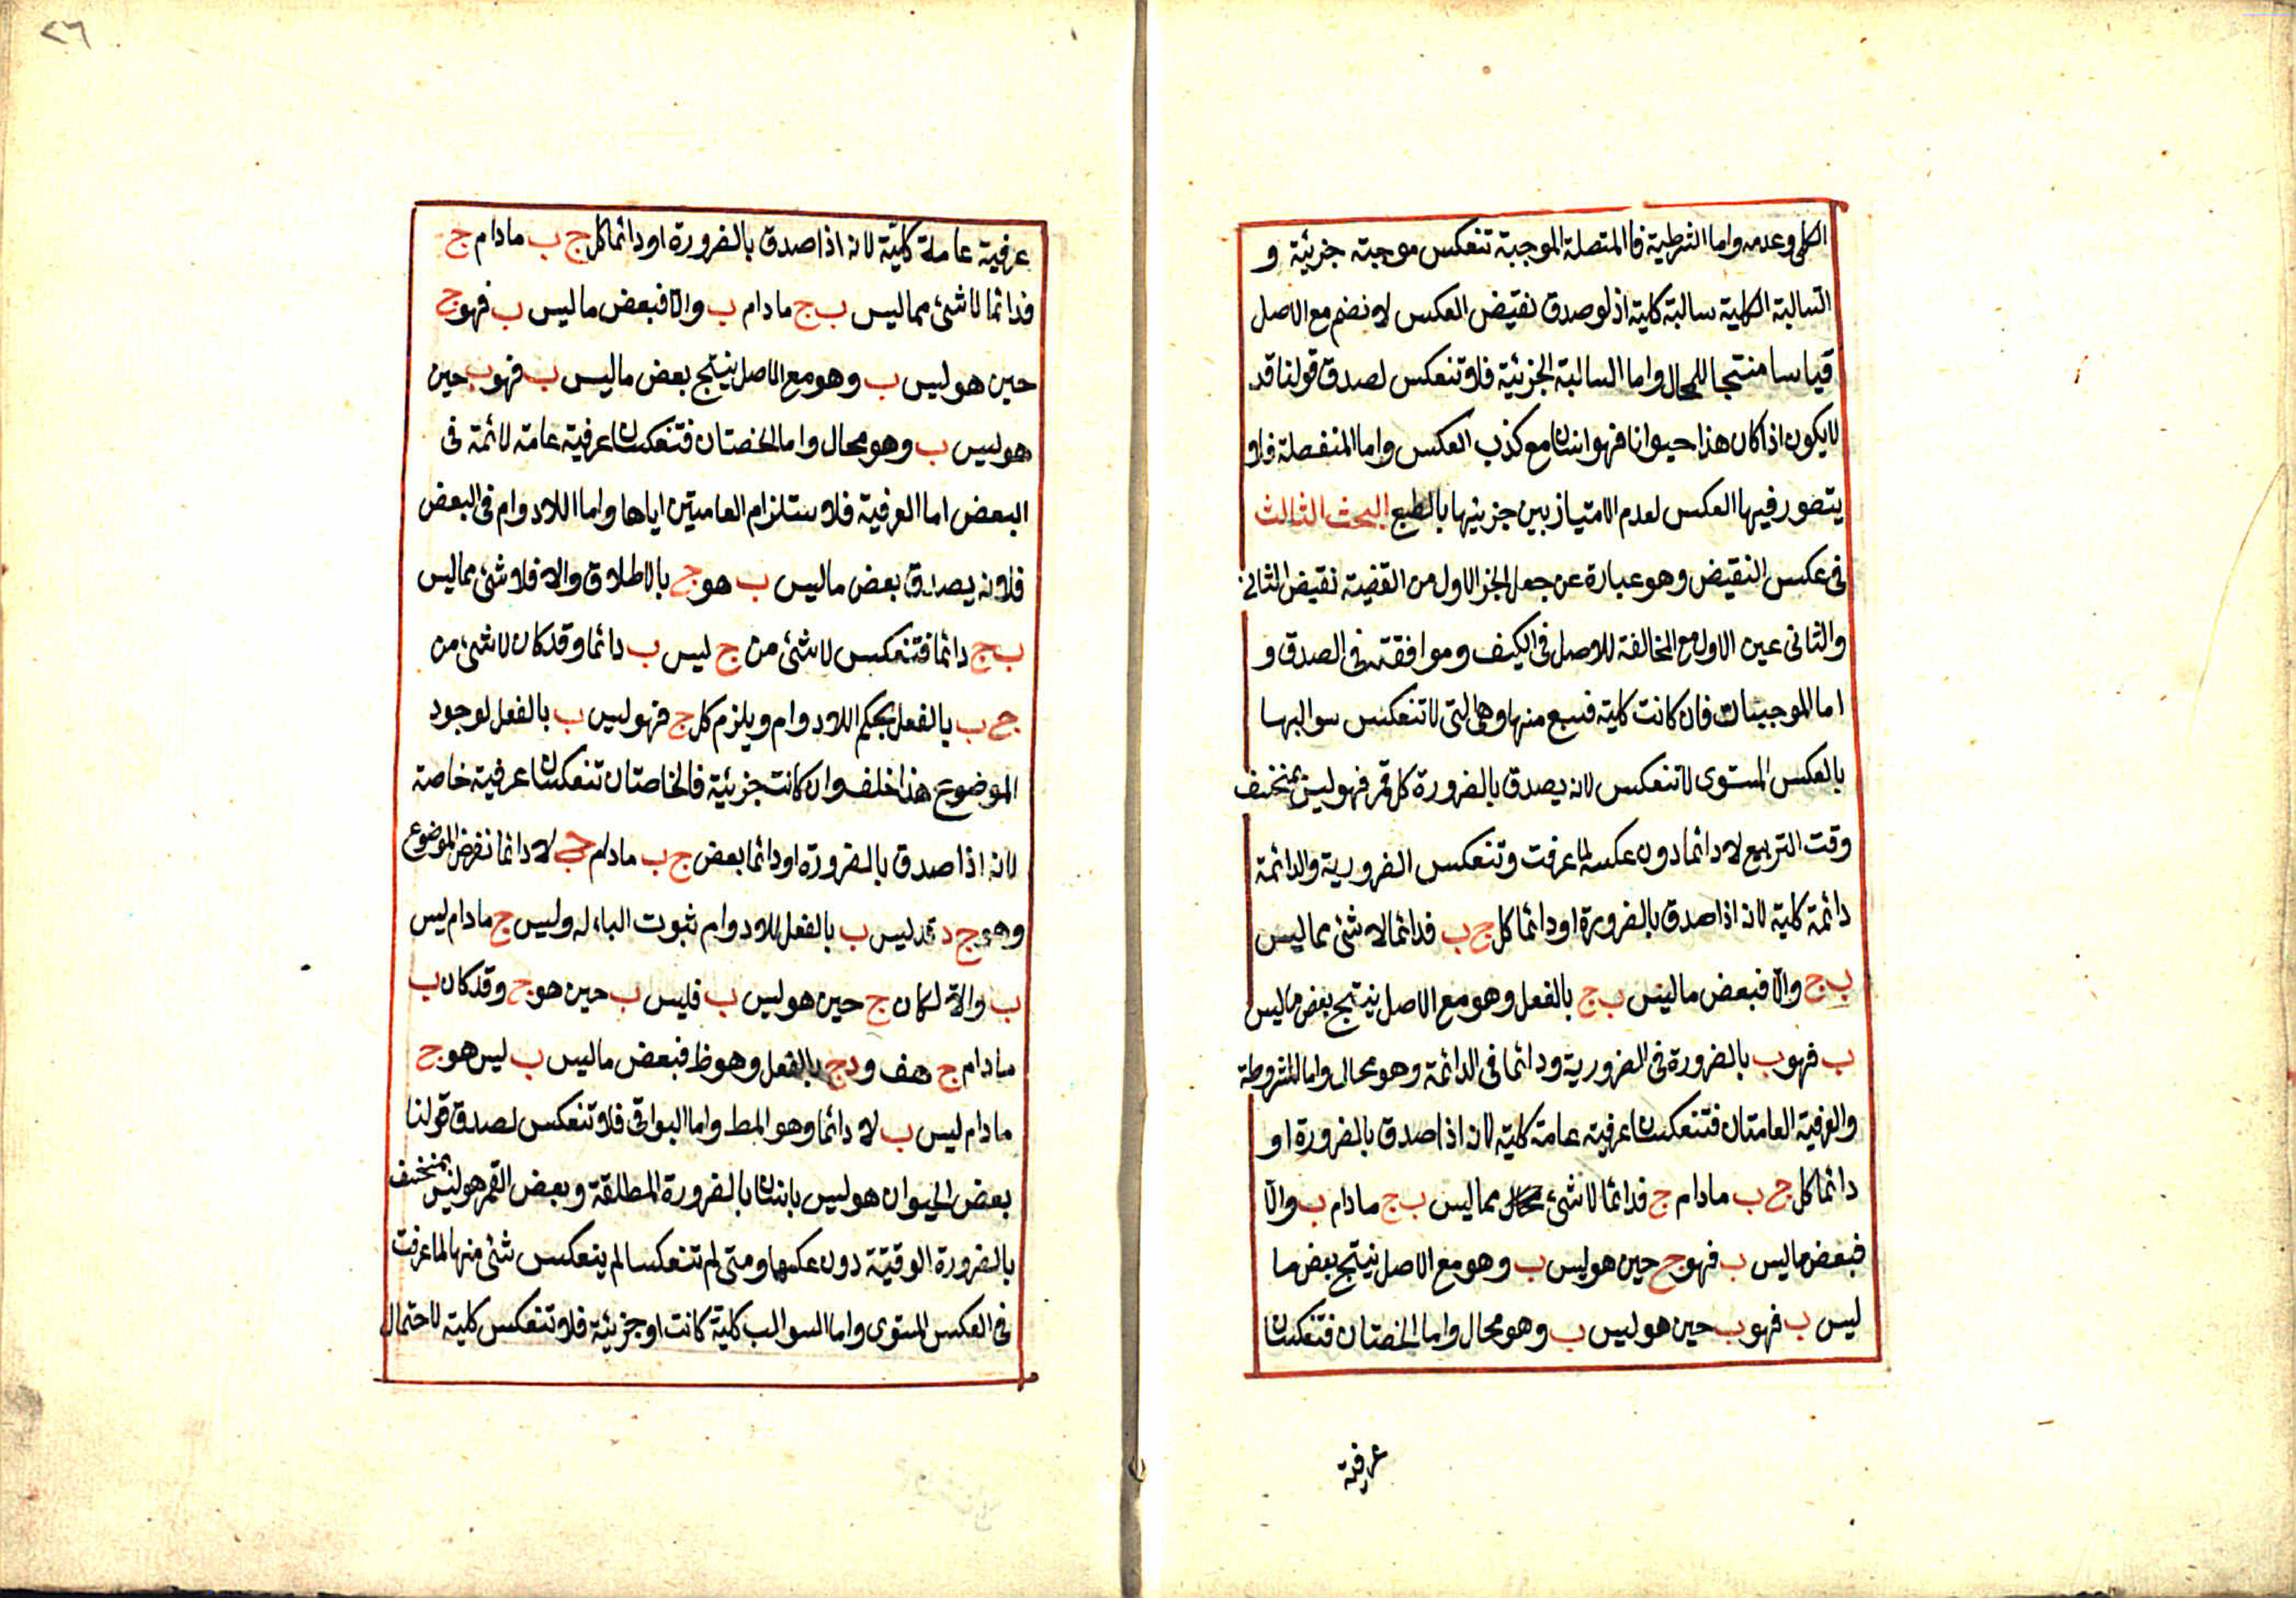 الكلى وعدمه واما الشرطية فالمتصلة الموجبة تنعكس موجبته جزئية و
السالبة الكلية سالبة كلية اذ لو صدق نقيض العكس لانضم مع الاصل
قياسا منتجا للمحال واما السالبة الجزئية فلا تنعكس لصدق قولنا قد
لا يكون اذا كان هذا حيوانا فهو انسان مع كذب العكس واما المنفصلة فلا
يتصور فيها العكس لعدم الامتياز بين جزئيها بالطبع البحث الثالث
فى عكس النقيض وهو عبارة عن جعل الجز الاول من القضية نقيض الثانى
والثانى عين الاول مع المخالفة للاصل فى الكيف وموافقته فى الصدق و
اما الموجبات فان كانت كلية فسبع منها وهى التى لا تنعكس سوالبها
بالعكس المستوى لا تنعكس لانه يصدق بالضرورة كل قمر فهو ليس بمنخسف
وقت التربيع لا دائما دون عكسه لما عرفت وتنعكس الضرورية والدائمة
دائمة كلية لانه اذا صدق بالضرورة او دائما كل ج ب فدائما لا شئ مما ليس
ب ج والا فبعض ما ليس ب ج بالفعل وهو مع الاصل ينتج بعض ما ليس
ب فهو ب بالضرورة فى الضرورية ودائما فى الدائمة وهو محال واما المشروطة
والعرفية العامتان فتنعكسان عرفية عامة كلية لانه اذا صدق بالضرورة او
دائما كل ج ب مادام ج فدائما لا شئ مما ليس ب ج مادام ب والا
فبعض ما ليس ب فهو ج حين هو ليس ب وهو مع الاصل ينتج بعض ما
ليس ب فهو ب حين هو ليس ب وهو محال واما الخصتان فتنعكسان
عرفية
٢٦
عرفية عاملة كلية لانه اذا صدق بالضرورة او دائما كل ج ب مادام ج
فدائما لا شئ مما ليس ب ج مادام ب والا فبعض ما ليس ب فهو ج
حين هو ليس ب وهو مع الاصل ينتج بعض ما ليس ب فهو ب حين
هو ليس ب وهو محال واما الخصتان فتنعكسان عرفية عامة لائمة فى
البعض اما العرفية فلاستلزام العامتين اياها واما اللادوام فى البعض
فلانه يصدق بعض ما ليس ب هو ج بالاطلاق والا فلا شئ مما ليس
ب ج دائما فتنعكس لا شئ من ج ليس ب دائما وقد كان لا شئ من
ج ب بالفعل بحكم اللادوام ويلزم كل ج فهو ليس ب بالفعل لوجود
الموضوع هذا خلف وان كانت جزئية فالخاصتان تنعكسان عرفية خاصة
لانه اذا صدق بالضرورة او دائما بعض ج ب مادام ج لا دائما نفرض الموضوع
وهو ج د قد ليس ب بالفعل للادوام ثبوت الباء له وليس ج مادام ليس
ب والا لكان ج حين هو ليس ب فليس ب حين هو ج وقد كان ب
مادام ج هف و د ج بالفعل وهو ظ فبعض ما ليس ب ليس هو ج
مادام ليس ب لا دائما وهو المط واما البواقى فلا تنعكس لصدق قولنا
بعض الحيوان هو ليس بانسان بالضرورة المطلقة وبعض القمر هو ليس بمنخسف
بالضرورة الوقتية دون عكسها ومتى لم تنعكسا لم ينعكس شئ منها لما عرفت
فى العكس المستوى واما السوالب كلية كانت او جزئية فلا تنعكس كلية لاحتمال